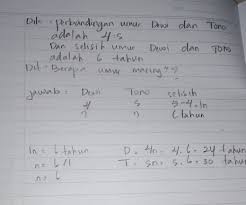 Dik: Perbandingan umur Dewi dan Tono
adalah 4:5
Dan selisih umur Dewi dan Tono
adalah 6 tahun
Dit: Berapa umur masing"??
jawab: Dewi Tono selisih
4 5 5-4=1n
? ? 6 tahun
1n = 6 tahun D = 4n = 4.6 = 24 tahun
n = 6/1 T = 5n = 5.6 = 30 tahun
n = 6